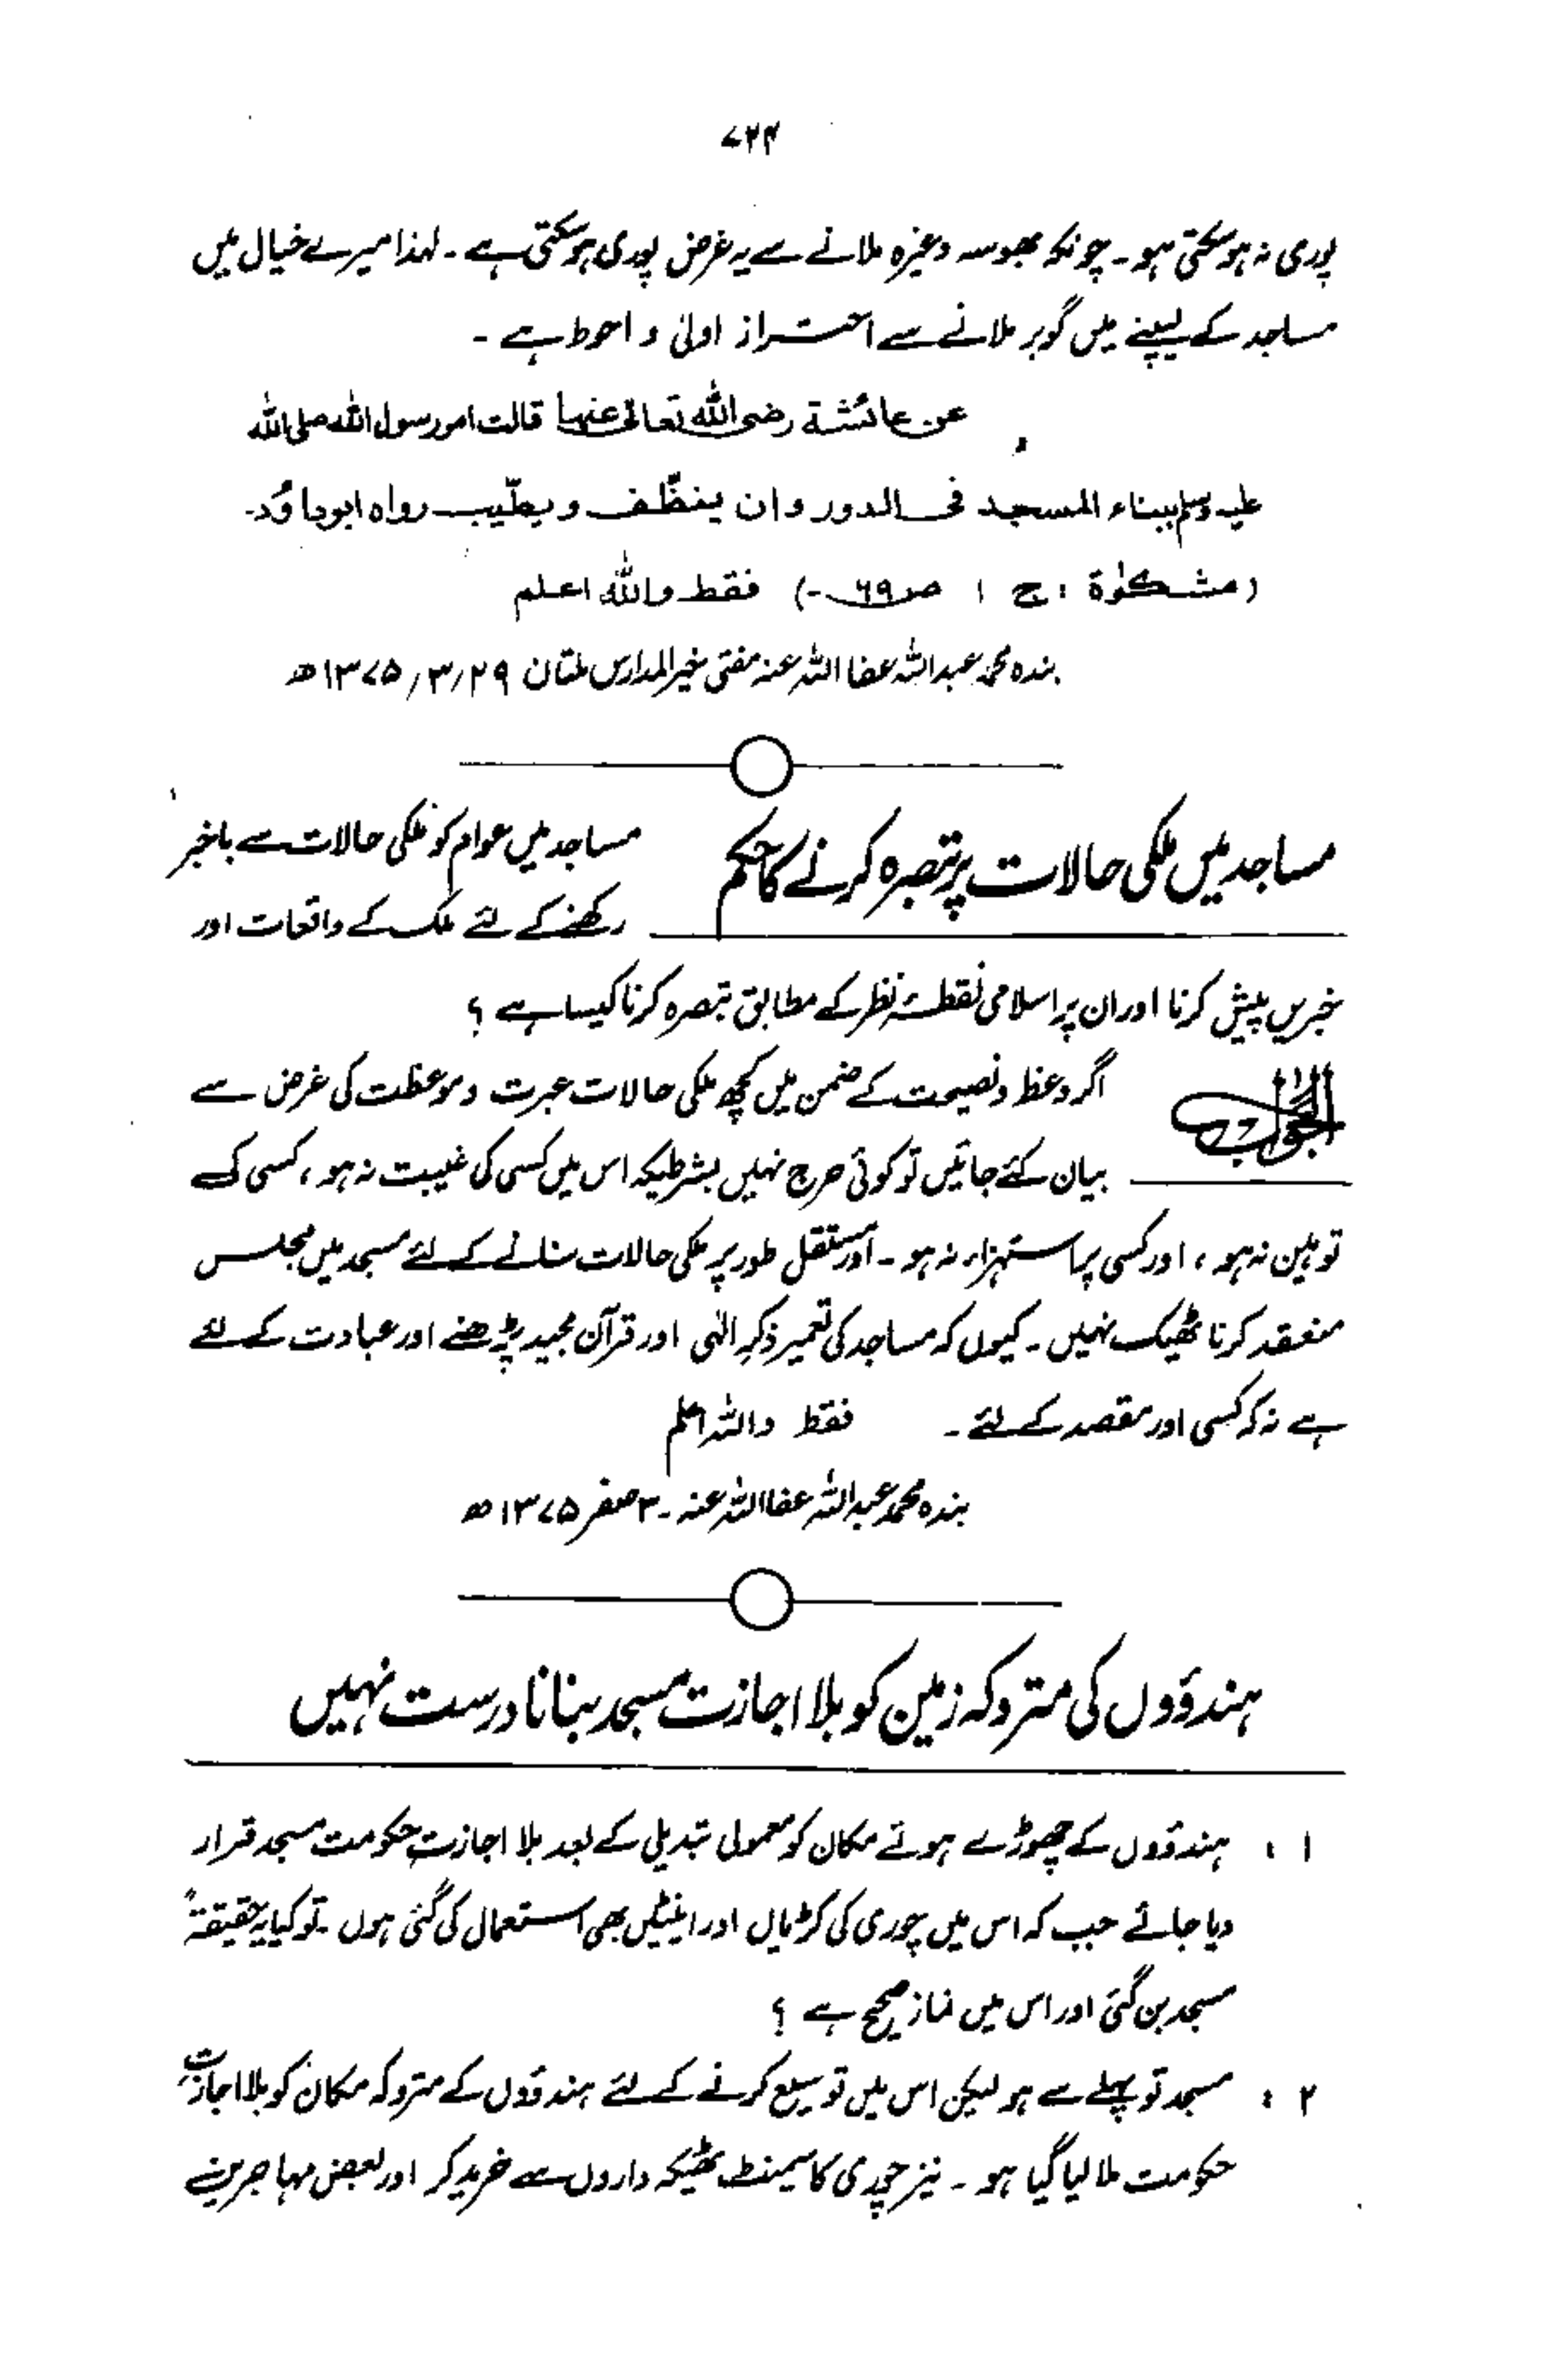 ۷۲۴
پوری نہ ہوسکتی ہو۔ چونکہ بھوسہ وغیرہ ملانے سے یہ غرض پوری ہوسکتی ہے۔ لہذا میرے خیال میں
مساجد کے لیپنے میں گوبر ملانے سے احتراز اولیٰ و احوط ہے۔
عن عائشة رضی اللہ تعالیٰ عنہا قالت امر رسول اللہ صلی اللہ
علیہ وسلم ببناء المسجد فی الدور وان ینظّف ویطیّب رواہ ابوداؤد۔
(مشکوٰۃ : ج ۱ ص۶۹-) فقط واللہ اعلم
بندہ محمد عبداللہ عفا اللہ عنہ مفتی خیر المدارس ملتان ۲۹/۳/۱۳۷۵ھ
مساجد میں ملکی حالات پر تبصرہ کرنے کا حکم
مساجد میں عوام کو ملکی حالات سے باخبر
رکھنے کے لئے ملک کے واقعات اور
خبریں پیش کرنا اور ان پر اسلامی نقطۂ نظر کے مطابق تبصرہ کرنا کیسا ہے ؟
الجواب
اگر وعظ و نصیحت کے ضمن میں کچھ ملکی حالات عبرت و موعظت کی غرض سے
بیان کئے جائیں تو کوئی حرج نہیں بشرطیکہ اس میں کسی کی غیبت نہ ہو، کسی کی
توہین نہ ہو، اور کسی پر استہزاء نہ ہو۔ اور مستقل طور پر ملکی حالات سنانے کے لئے مسجد میں مجلس
منعقد کرنا ٹھیک نہیں۔ کیوں کہ مساجد کی تعمیر ذکرِ الٰہی اور قرآن مجید پڑھنے اور عبادت کے لئے
ہے نہ کہ کسی اور مقصد کے لئے۔ فقط واللہ اعلم
بندہ محمد عبداللہ عفا اللہ عنہ۔ ۳ صفر ۱۳۷۵ھ
ہندوؤں کی متروکہ زمین کو بلا اجازت مسجد بنانا درست نہیں
۱ : ہندوؤں کے چھوڑے ہوئے مکان کو معمولی تبدیلی کے بعد بلا اجازتِ حکومت مسجد قرار
دیا جائے جب کہ اس میں چوری کی کڑیاں اور اینٹیں بھی استعمال کی گئی ہوں۔ تو کیا یہ حقیقۃً
مسجد بن گئی اور اس میں نماز صحیح ہے ؟
۲ : مسجد تو پہلے سے ہو لیکن اس میں توسیع کرنے کے لئے ہندوؤں کے متروکہ مکان کو بلا اجازتِ
حکومت ملا لیا گیا ہو۔ نیز چوری کا سیمنٹ ٹھیکہ داروں سے خرید کر اور بعض مہاجرین نے